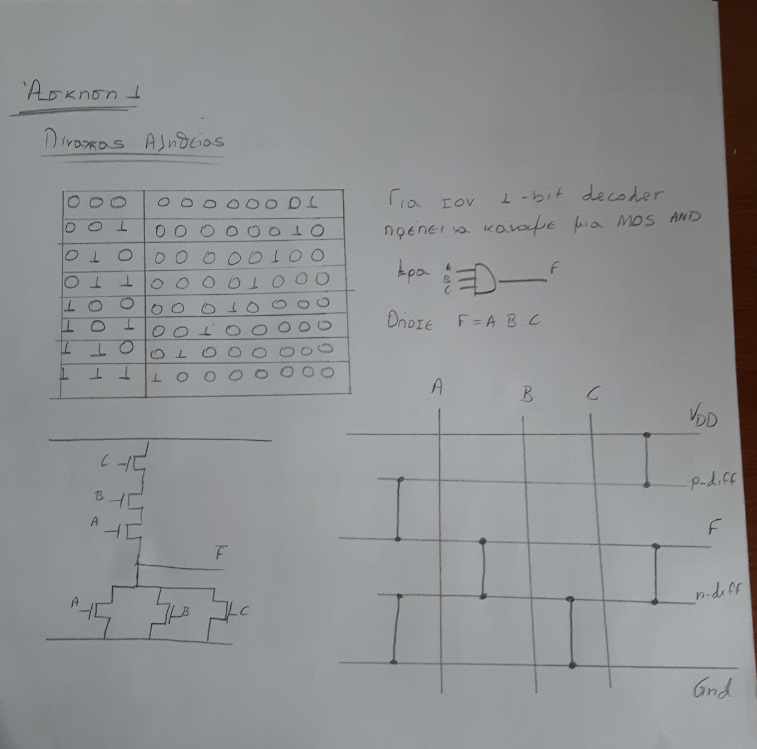 Άσκηση 1
Πίνακας Αληθείας
0 0 0 0 0 0 0 0 0 0 1
0 0 1 0 0 0 0 0 0 1 0
0 1 0 0 0 0 0 0 1 0 0
0 1 1 0 0 0 0 1 0 0 0
1 0 0 0 0 0 1 0 0 0 0
1 0 1 0 0 1 0 0 0 0 0
1 1 0 0 1 0 0 0 0 0 0
1 1 1 1 0 0 0 0 0 0 0
Για τον 1-bit decoder
πρέπει να κάνουμε μια MOS AND
Άρα A B C F
Οπότε F = A B · C
C
B
A
F
A B C
A B C
VDD
p-diff
F
n-diff
Gnd